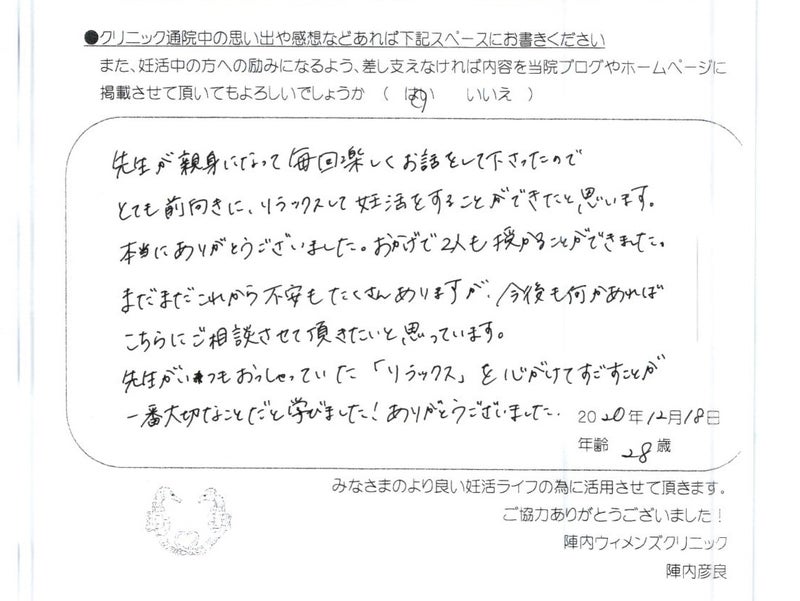 ●クリニック通院中の思い出や感想などあれば下記スペースにお書きください
また、妊活中の方への励みになるよう、差し支えなければ内容を当院ブログやホームページに
掲載させて頂いてもよろしいでしょうか （ はい いいえ ）
先生が親身になって毎回楽しくお話をして下さったので
とても前向きに、リラックスして妊活をすることができたと思います。
本当にありがとうございました。おかげで2人も授かることができました。
まだまだこれから不安もたくさんありますが、今後も何かあれば
こちらにご相談させて頂きたいと思っています。
先生がいつもおっしゃっていた「リラックス」を心がけてすごすことが
一番大切なことだと学びました！ありがとうございました。
2020年12月18日
年齢 28歳
みなさまのより良い妊活ライフの為に活用させて頂きます。
ご協力ありがとうございました！
陣内ウィメンズクリニック
陣内彦良